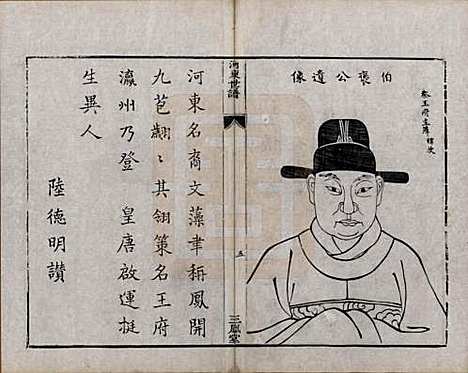 伯褒公遺像
秦王府主簿 
河東世譜
五
三鳳堂
河東名裔文藻聿稱鳳開
九苞翽〻其翎策名王府
瀛州乃登　皇唐啟運挺
生異人
陸德明讃